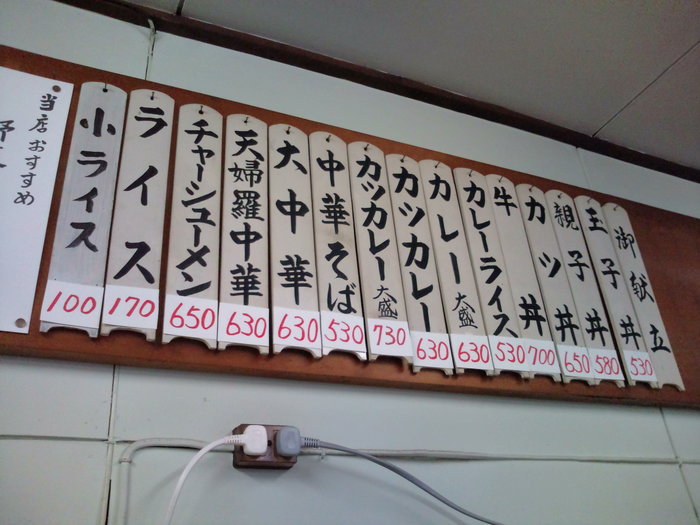 御献立
玉子丼
530
親子丼
580
カツ丼
650
牛丼
700
カレーライス
530
カレー大盛
630
カツカレー
630
カツカレー大盛
730
中華そば
530
大中華
630
天婦羅中華
630
チャーシューメン
650
ライス
170
小ライス
100
当店おすすめ